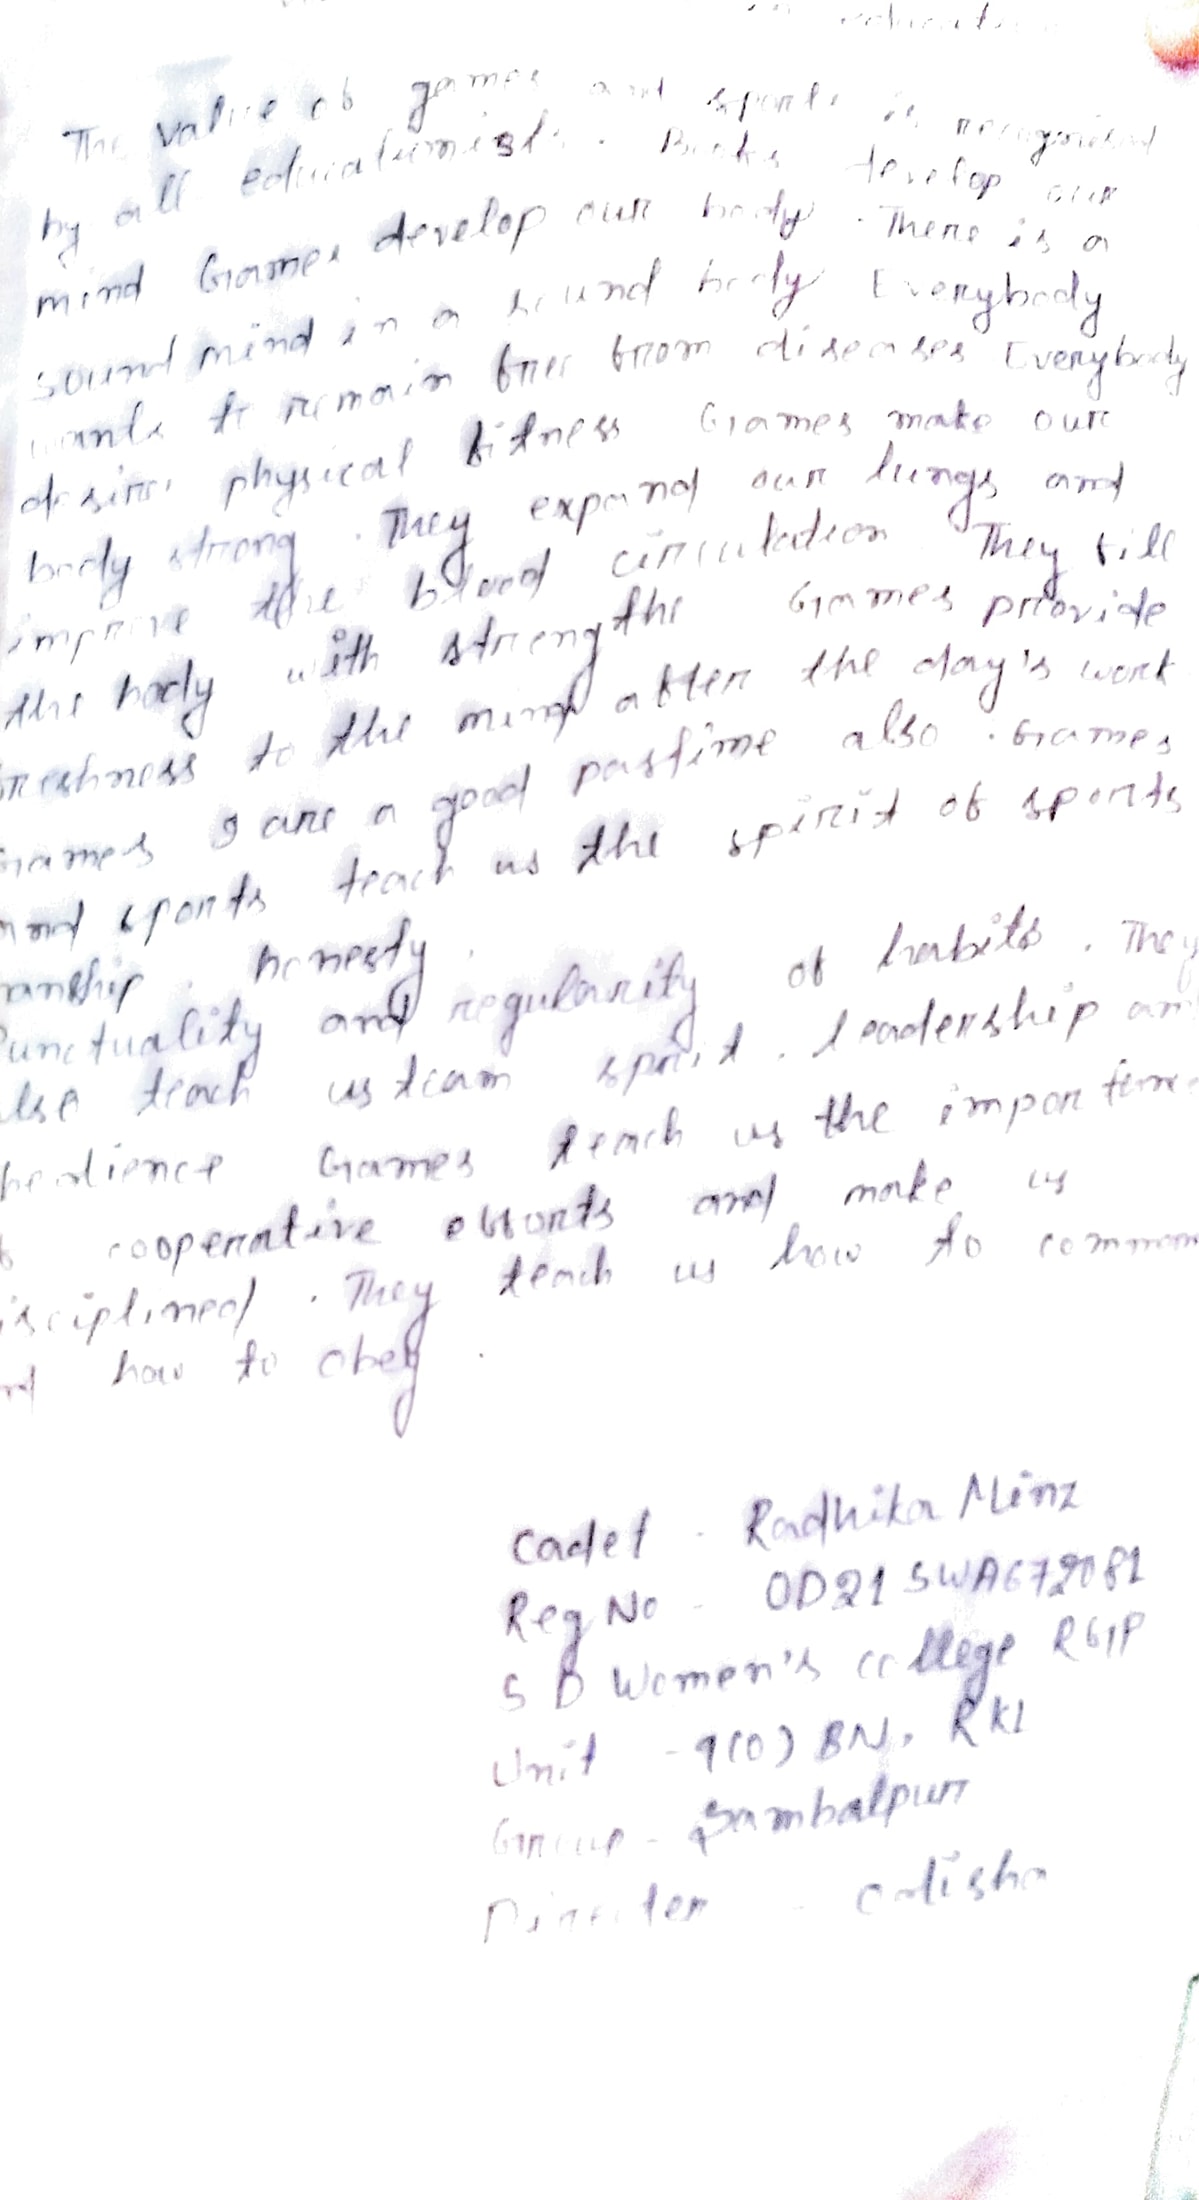 in education
The value of games and sports is recognised
by all educationists. Books develop our
mind Games develop our body. There is a
sound mind in a sound body Everybody
wants to remain free from diseases Everybody
desire physical fitness Games make our
body strong. They expand our lungs and
improve the blood circulation They fill
the body with strengths Games provide
freshness to the mind after the day's work
Games are a good pastime also. Games
and sports teach us the spirit of sports
manship. honesty.
Punctuality and regularity of habits. They
also teach us team spirit. leadership and
obedience Games teach us the importance
of cooperative efforts and make us
disciplined. They teach us how to comman
and how to obey.
Cadet - Radhika Minz
Reg No - OD21SWA672081
S D Women's college RGP
Unit - 9(O) BN, RKL
Group - Sambalpur
Director - Odisha